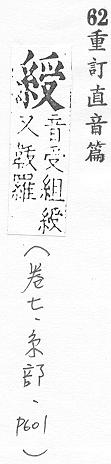 62重訂直音篇
綬
音受組綬
又㦻羅
(卷七.糸部.p601)